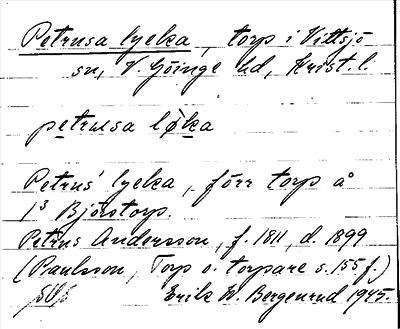 Petrusa lycka, torp i Vittsjö
sn, V. Göinge hd, Krist. l.
petrusa løka
Petrus' lycka, förr torp å
1³ Bjärstorp.
Petrus Andersson, f. 1811, d. 1899
(Paulsson, Torp o. torpare s. 155 f.)
Erik W. Bergenrud 1945.